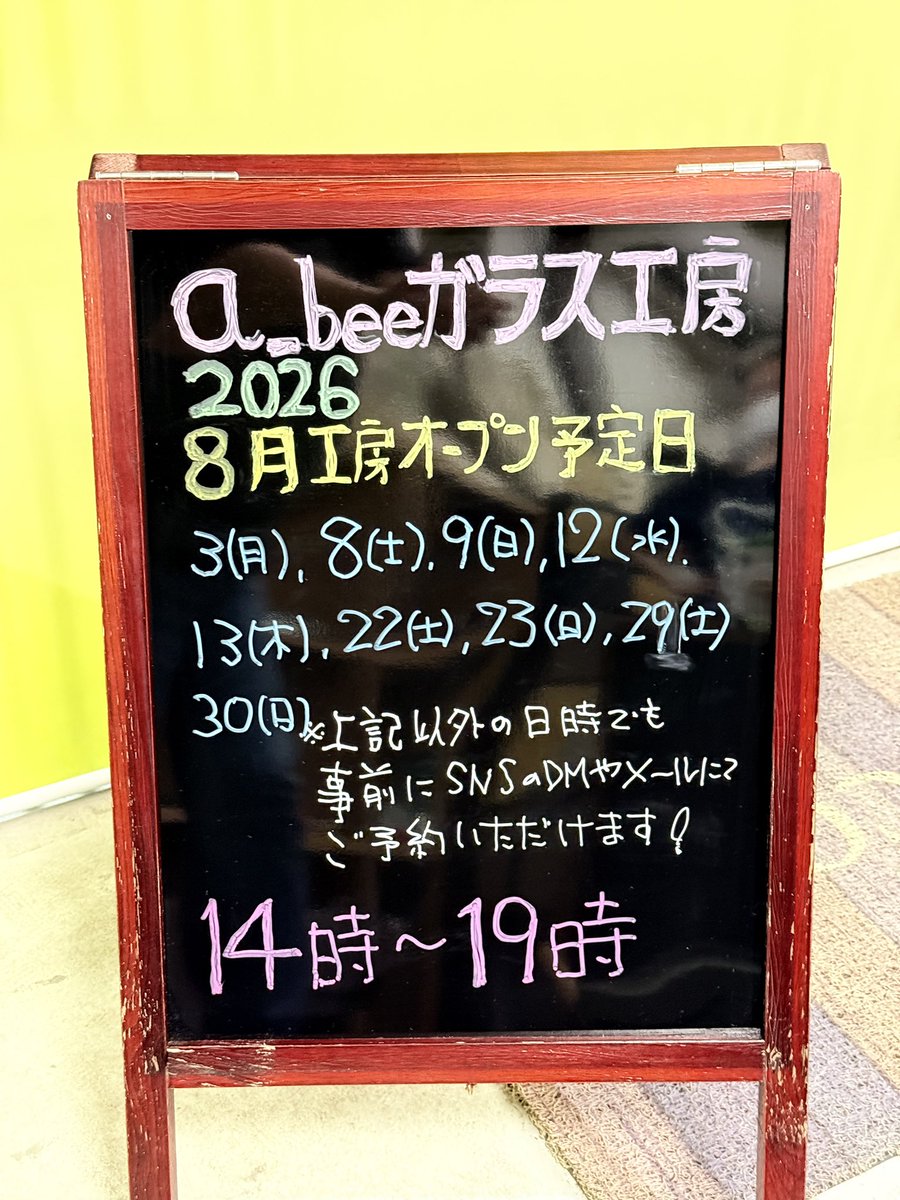 a_beeガラス工房
2026
8月工房オープン予定日
3(月), 8(土), 9(日), 12(水),
13(木), 22(土), 23(日), 29(土)
30(日)
※上記以外の日時でも
事前にSNSのDMやメールにて
ご予約いただけます!
14時〜19時